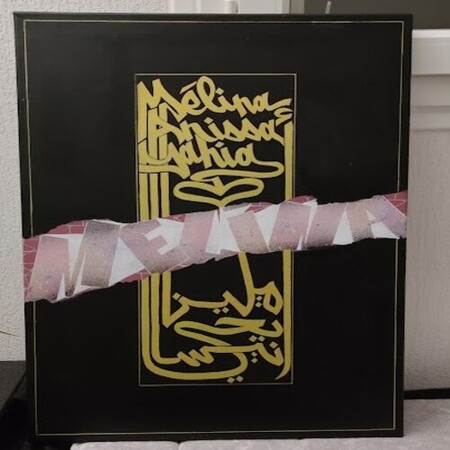 Mélina
Anissa
Yahia
MELINA
ميلينا
يحي
أنيسا